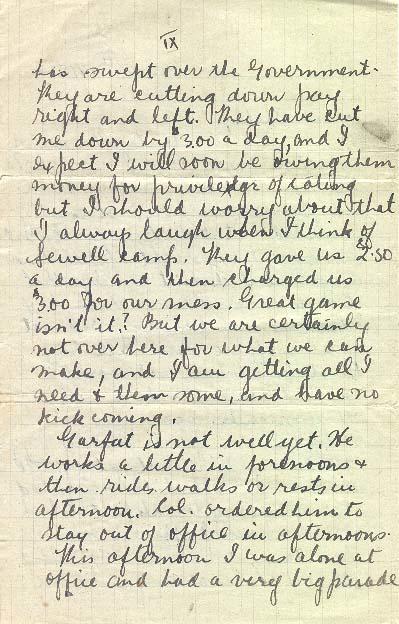 IX
has swept over the Government.
They are cutting down pay
right and left. They have cut
me down by $3.00 a day, and I
expect I will soon be owing them
money for priviledge of eating
but I should worry about that
I always laugh when I think of
Sewell camp. They gave us $2.50
a day and then charged us
$3.00 for our mess. Great game
isn't it? But we are certainly
not over here for what we can
make, and I am getting all I
need & then some, and have no
kick coming.
Garfat is not well yet. He
works a little in forenoons &
then rides walks or rests in
afternoon. Col. ordered him to
stay out of office in afternoons.
This afternoon I was alone at
office and had a very big parade